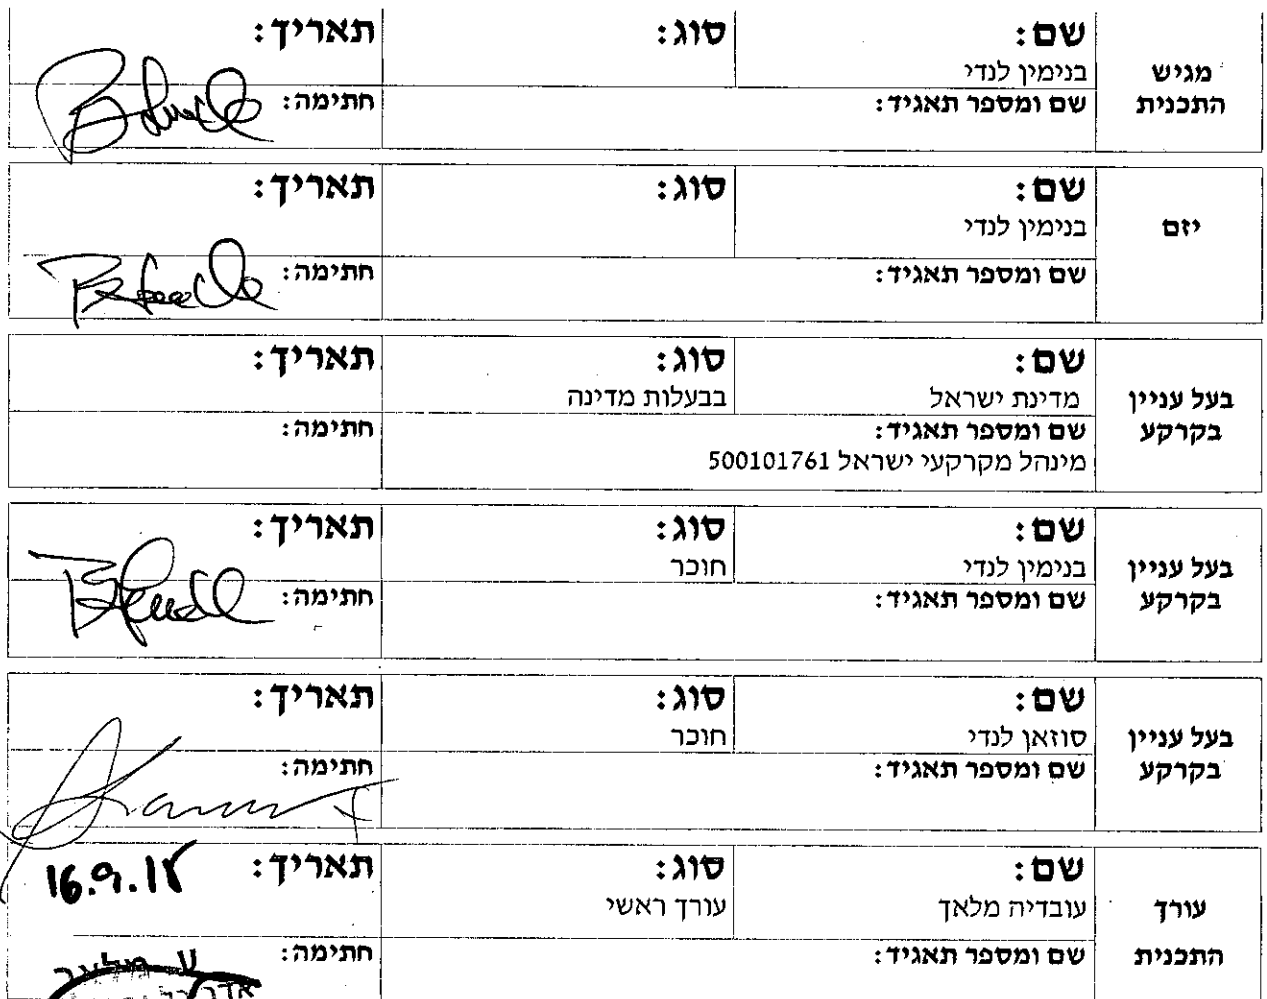 מגיש
התכנית
שם:
בנימין לנדי
סוג:
תאריך:
שם ומספר תאגיד:
חתימה:
יזם
שם:
בנימין לנדי
סוג:
תאריך:
שם ומספר תאגיד:
חתימה:
בעל עניין
בקרקע
שם:
מדינת ישראל
סוג:
בבעלות מדינה
תאריך:
שם ומספר תאגיד:
מינהל מקרקעי ישראל 500101761
חתימה:
בעל עניין
בקרקע
שם:
בנימין לנדי
סוג:
חוכר
תאריך:
שם ומספר תאגיד:
חתימה:
בעל עניין
בקרקע
שם:
סוזאן לנדי
סוג:
חוכר
תאריך:
שם ומספר תאגיד:
חתימה:
עורך
התכנית
שם:
עובדיה מלאך
סוג:
עורך ראשי
תאריך:
שם ומספר תאגיד:
חתימה: